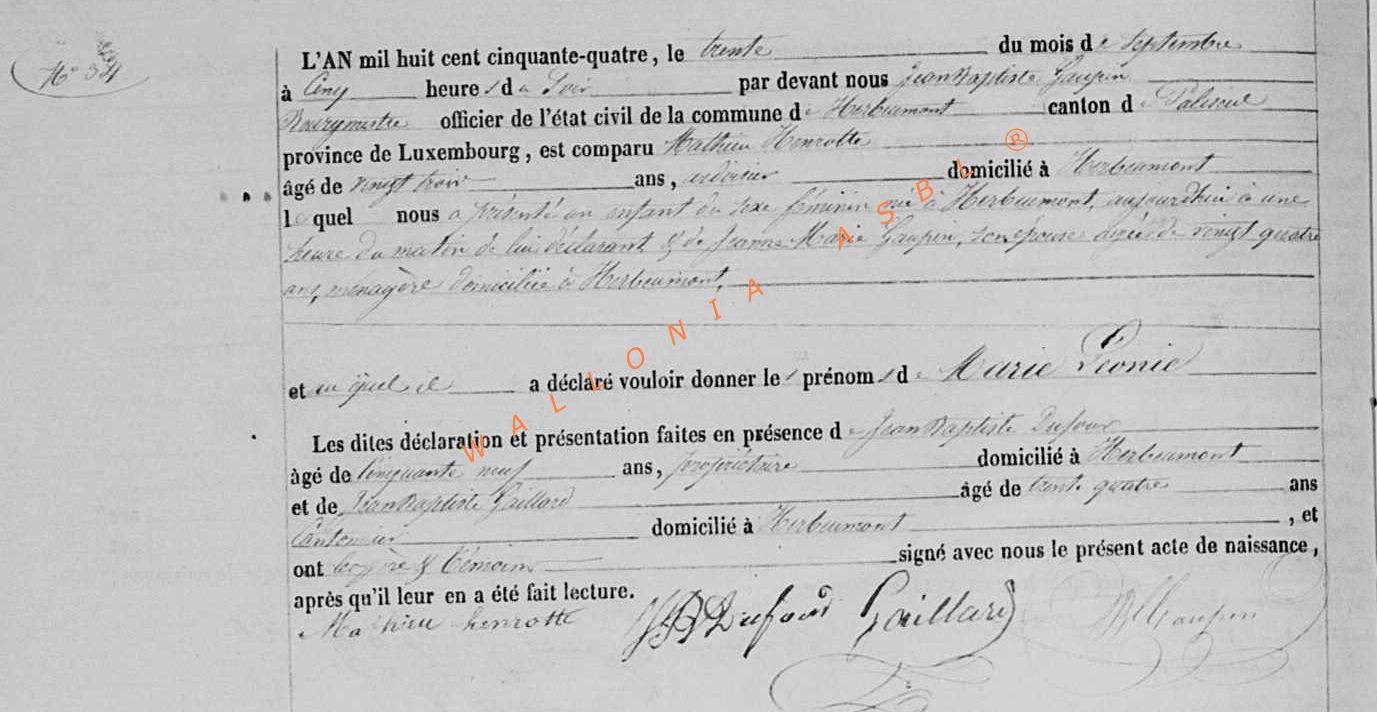 N° 34
L'AN mil huit cent cinquante-quatre, le trente du mois de Septembre
à Cinq heures du Soir par devant nous Jean Baptiste Gaupin
Bourgmestre officier de l'état civil de la commune de Herbeumont canton de Paliseul
province de Luxembourg, est comparu Mathieu Henrotte
âgé de vingt trois ans, ardoisier domicilié à Herbeumont
lequel nous a présenté un enfant du sexe féminin né à Herbeumont, aujourdhui à une
heure du matin de lui déclarant & de Jeanne Marie Gaupin, son épouse agée de vingt quatre
ans, ménagère domiciliée à Herbeumont.
et auquel il a déclaré vouloir donner les prénoms de Marie Léonie
Les dites déclaration et présentation faites en présence de Jean Baptiste Dufour
âgé de Cinquante neuf ans, propriétaire domicilié à Herbeumont
et de Jean Baptiste Gaillard âgé de trente quatre ans
Cantonnier domicilié à Herbeumont, et
ont les père & témoins signé avec nous le présent acte de naissance,
après qu'il leur en a été fait lecture.
Mathieu henrotte JB Dufour Gaillard JB Gaupin
WALLONIA ASBL ®